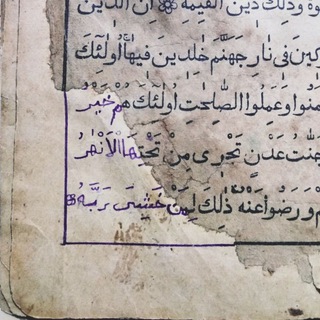 وة وذلك دين القيمة ان الذين
كين في نار جهنم خلدين فيها اولئك
منوا وعملوا الصلحت اولئك هم خير
جنت عدن تجري من تحتها الانهر
م ورضوا عنه ذلك لمن خشي ربه